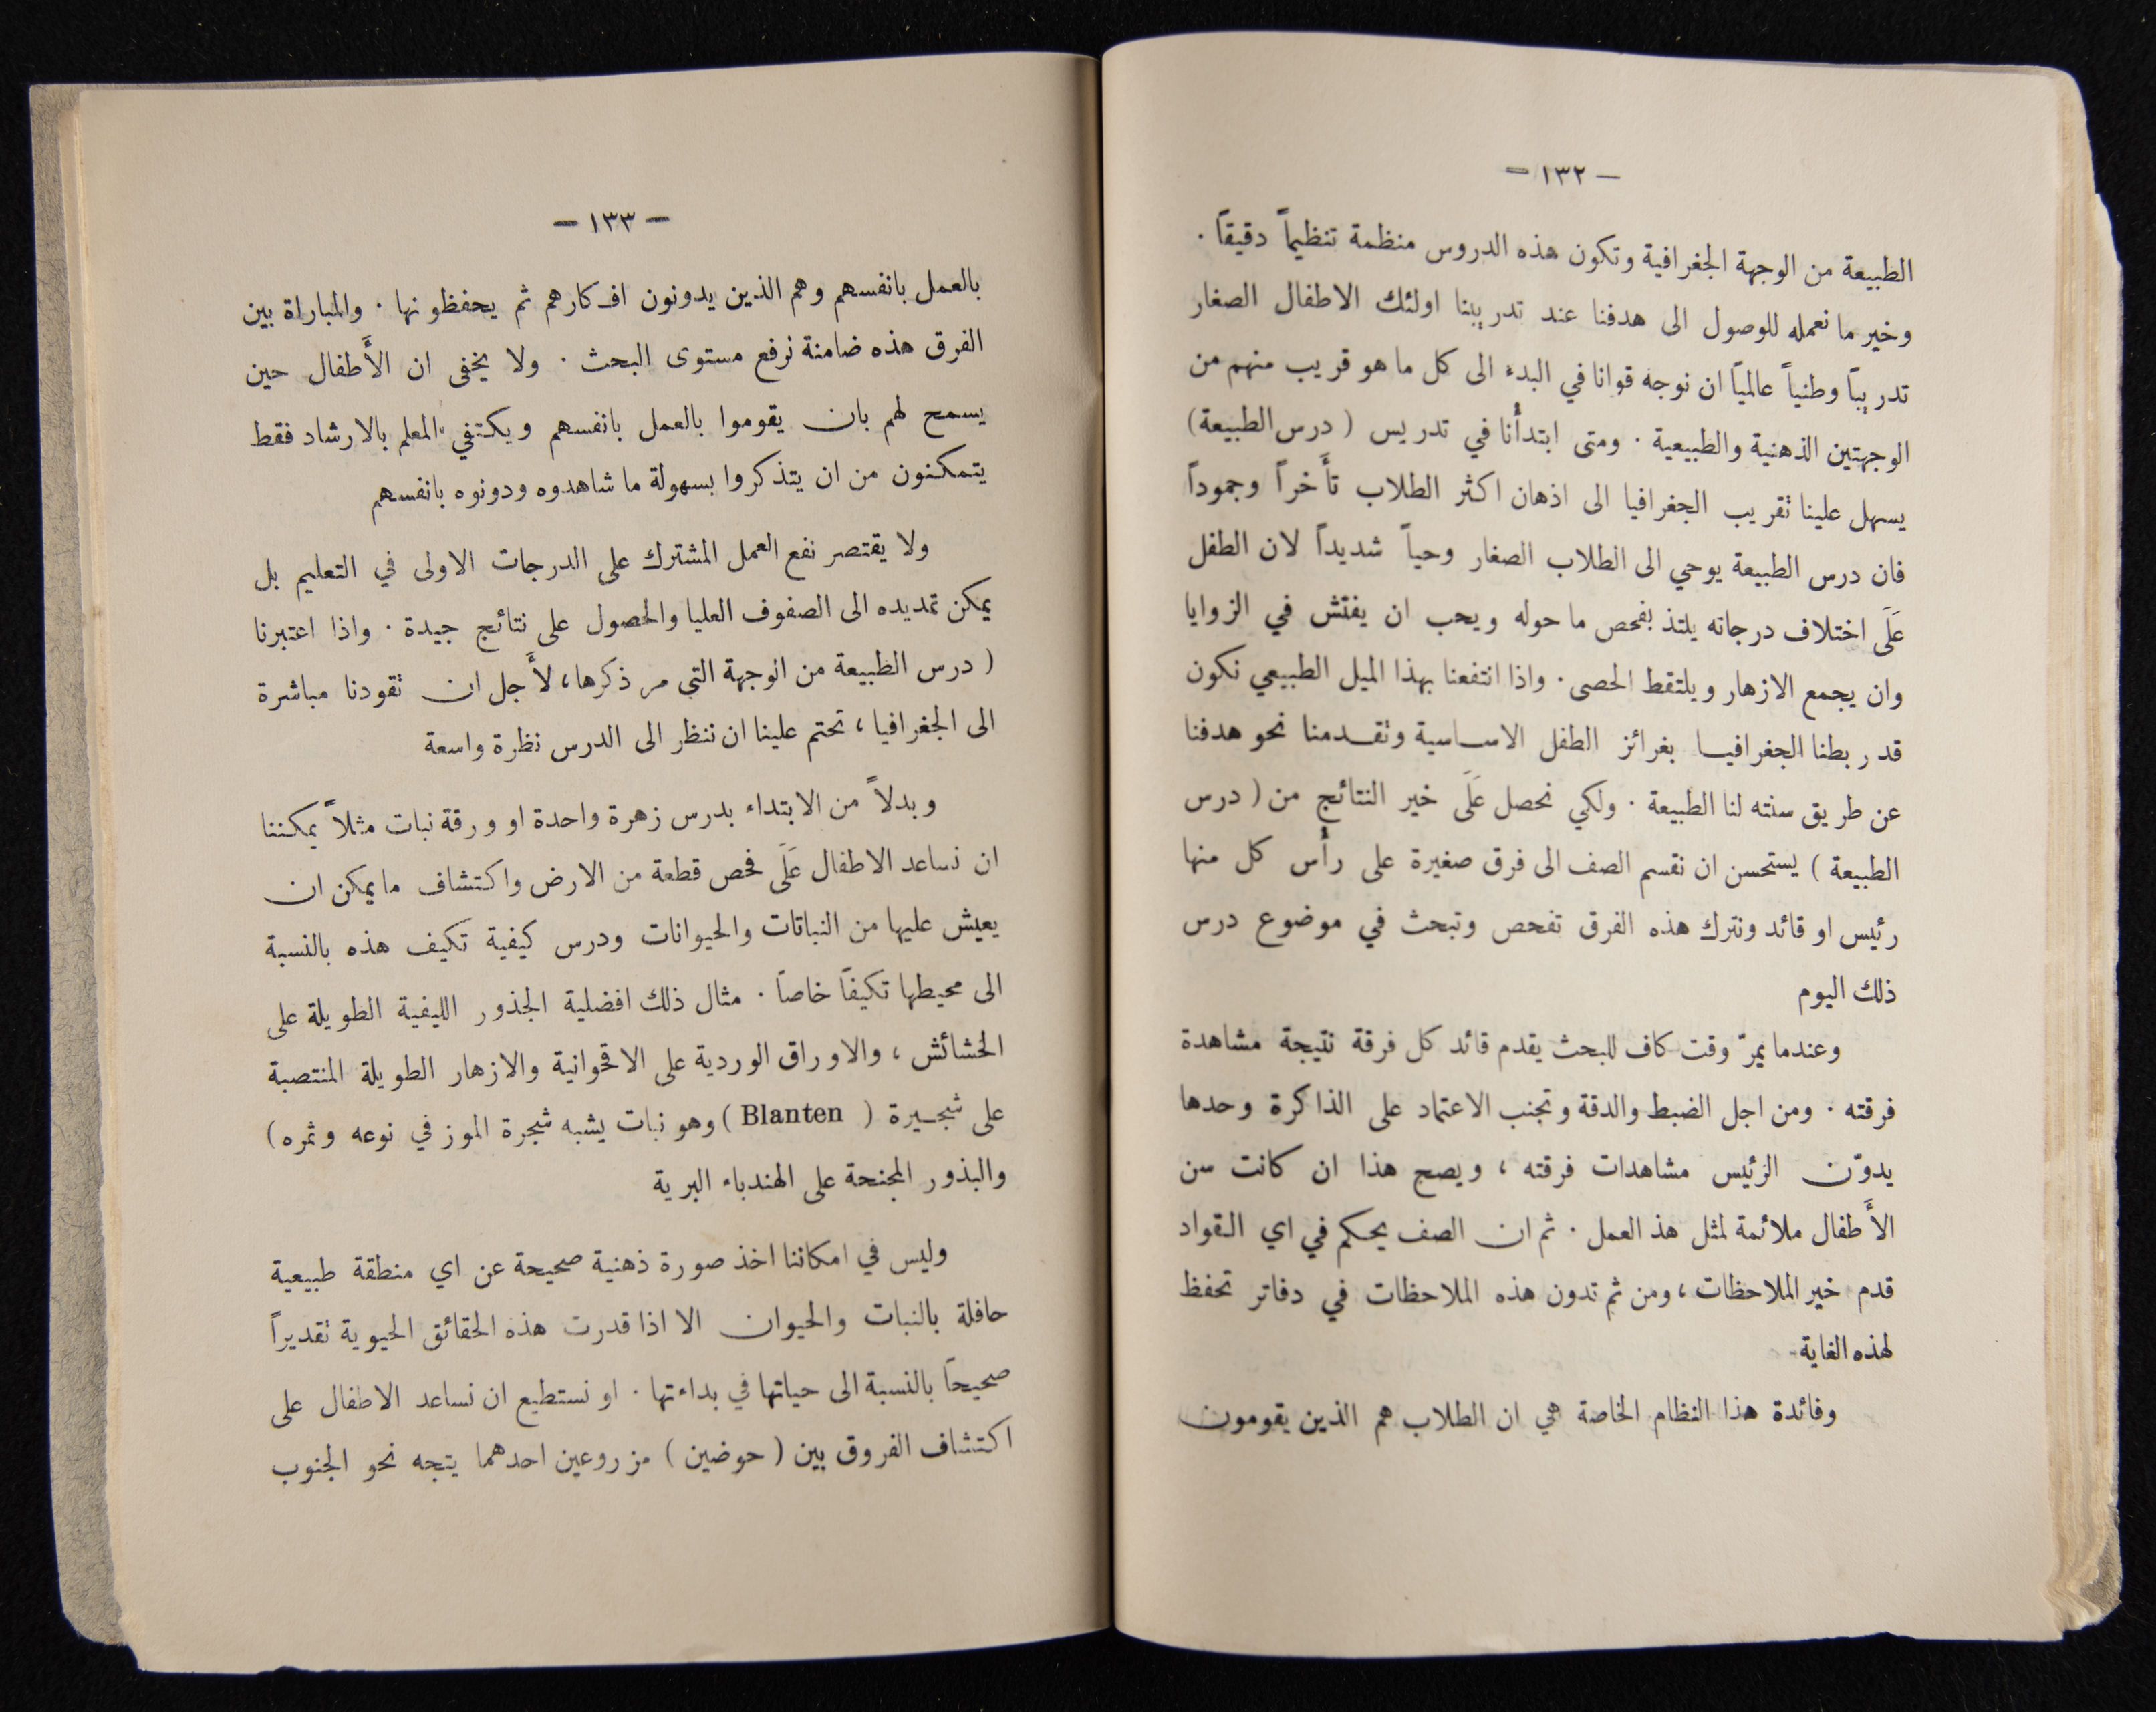 — ١٣٢ —
الطبيعة من الوجهة الجغرافية وتكون هذه الدروس منظمة تنظيماً دقيقاً .
وخير ما نعمله للوصول الى هدفنا عند تدريبنا اولئك الاطفال الصغار
تدريباً وطنياً عالمياً ان نوجه قوانا في البدء الى كل ما هو قريب منهم من
الوجهتين الذهنية والطبيعية . ومتى ابتدأنا في تدريس ( درس الطبيعة )
يسهل علينا تقريب الجغرافيا الى اذهان اكثر الطلاب تأَخراً وجموداً
فان درس الطبيعة يوحي الى الطلاب الصغار وحياً شديداً لان الطفل
عَلَى اختلاف درجاته يلتذ بفحص ما حوله ويحب ان يفتش في الزوايا
وان يجمع الازهار ويلتقط الحصى . واذا انتفعنا بهذا الميل الطبيعي نكون
قد ربطنا الجغرافيا بغرائز الطفل الاساسية وتقدمنا نحو هدفنا
عن طريق سنته لنا الطبيعة . ولكي نحصل عَلَى خير النتائج من ( درس
الطبيعة ) يستحسن ان نقسم الصف الى فرق صغيرة على رأس كل منها
رئيس او قائد ونترك هذه الفرق تفحص وتبحث في موضوع درس
ذلك اليوم
وعندما يمرّ وقت كاف للبحث يقدم قائد كل فرقة نتيجة مشاهدة
فرقته . ومن اجل الضبط والدقة وتجنب الاعتماد على الذاكرة وحدها
يدوّن الرئيس مشاهدات فرقته ، ويصح هذا ان كانت سن
الأَطفال ملائمة لمثل هذ العمل . ثم ان الصف يحكم في اي القواد
قدم خير الملاحظات ، ومن ثم تدون هذه الملاحظات في دفاتر تحفظ
لهذه الغاية
وفائدة هذا النظام الخاصة هي ان الطلاب هم الذين يقومون
— ١٣٣ —
بالعمل بانفسهم وهم الذين يدونون افكارهم ثم يحفظونها . والمباراة بين
الفرق هذه ضامنة نرفع مستوى البحث . ولا يخفى ان الأَطفال حين
يسمح لهم بان يقوموا بالعمل بانفسهم ويكتفي المعلم بالارشاد فقط
يتمكنون من ان يتذكروا بسهولة ما شاهدوه ودونوه بانفسهم
ولا يقتصر نفع العمل المشترك على الدرجات الاولى في التعليم بل
يمكن تمديده الى الصفوف العليا والحصول على نتائج جيدة . واذا اعتبرنا
( درس الطبيعة من الوجهة التي مر ذكرها ، لأَجل ان تقودنا مباشرة
الى الجغرافيا ، تحتم علينا ان ننظر الى الدرس نظرة واسعة
وبدلاً من الابتداء بدرس زهرة واحدة او ورقة نبات مثلاً يمكننا
ان نساعد الاطفال عَلَى فحص قطعة من الارض واكتشاف ما يمكن ان
يعيش عليها من النباتات والحيوانات ودرس كيفية تكيف هذه بالنسبة
الى محيطها تكيفاً خاصاً . مثال ذلك افضلية الجذور الليفية الطويلة على
الحشائش ، والاوراق الوردية على الاقحوانية والازهار الطويلة المنتصبة
على شجيرة ( Blanten ) وهو نبات يشبه شجرة الموز في نوعه وثمره )
والبذور المجنحة على الهندباء البرية
وليس في امكاننا اخذ صورة ذهنية صحيحة عن اي منطقة طبيعية
حافلة بالنبات والحيوان الا اذا قدرت هذه الحقائق الحيوية تقديراً
صحيحاً بالنسبة الى حياتها في بداءتها . او نستطيع ان نساعد الاطفال على
اكتشاف الفروق بين ( حوضين ) مزروعين احدهما يتجه نحو الجنوب